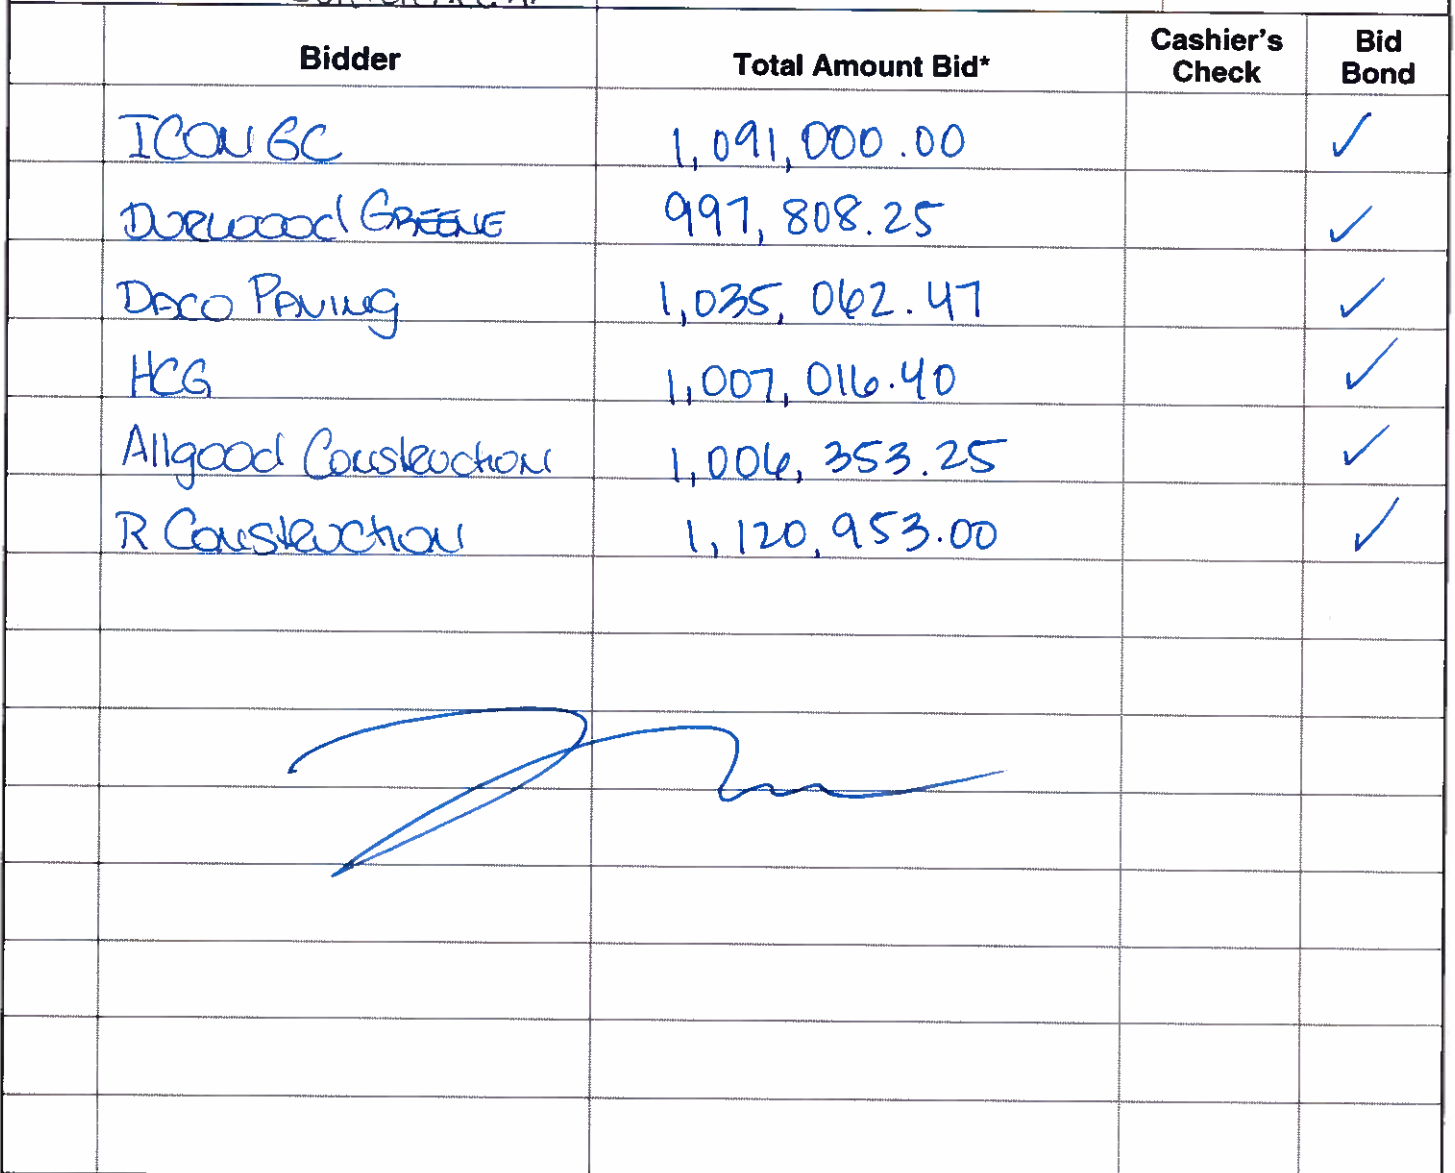 Bidder Total Amount Bid* Cashier's Check Bid Bond
ICON GC 1,091,000.00 ✓
Durwood Greene 997,808.25 ✓
Daco Paving 1,035,062.47 ✓
HCG 1,007,016.40 ✓
Allgood Construction 1,006,353.25 ✓
R Construction 1,120,953.00 ✓